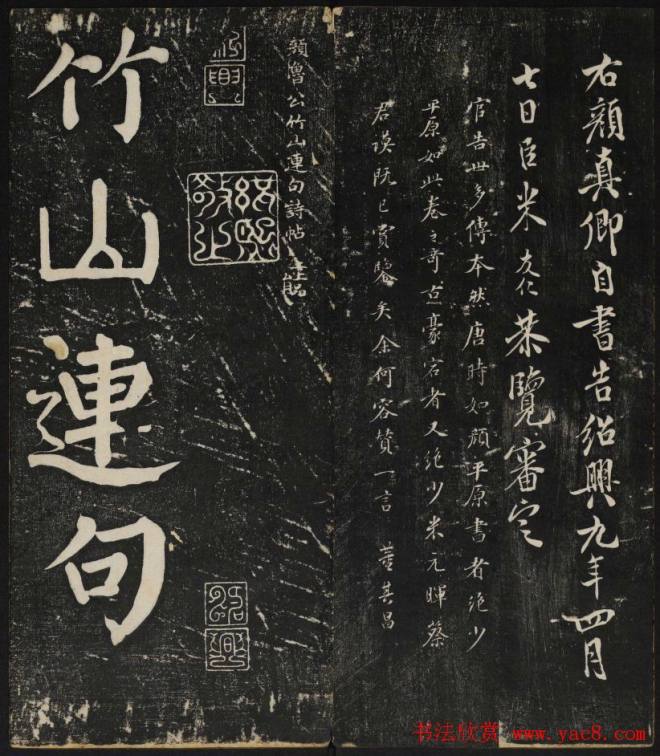 右顏真卿自書告紹興九年四月
七日臣米友仁恭覽審定
官告世多傳本然唐時如顏平原書者絕少
平原如此卷之奇古豪宕者又絕少米元暉蔡
君謨既已賞鑒矣余何容贊一言 董其昌
顏魯公竹山連句詩帖
紹興
竹山連句
书法欣赏 www.yac8.com